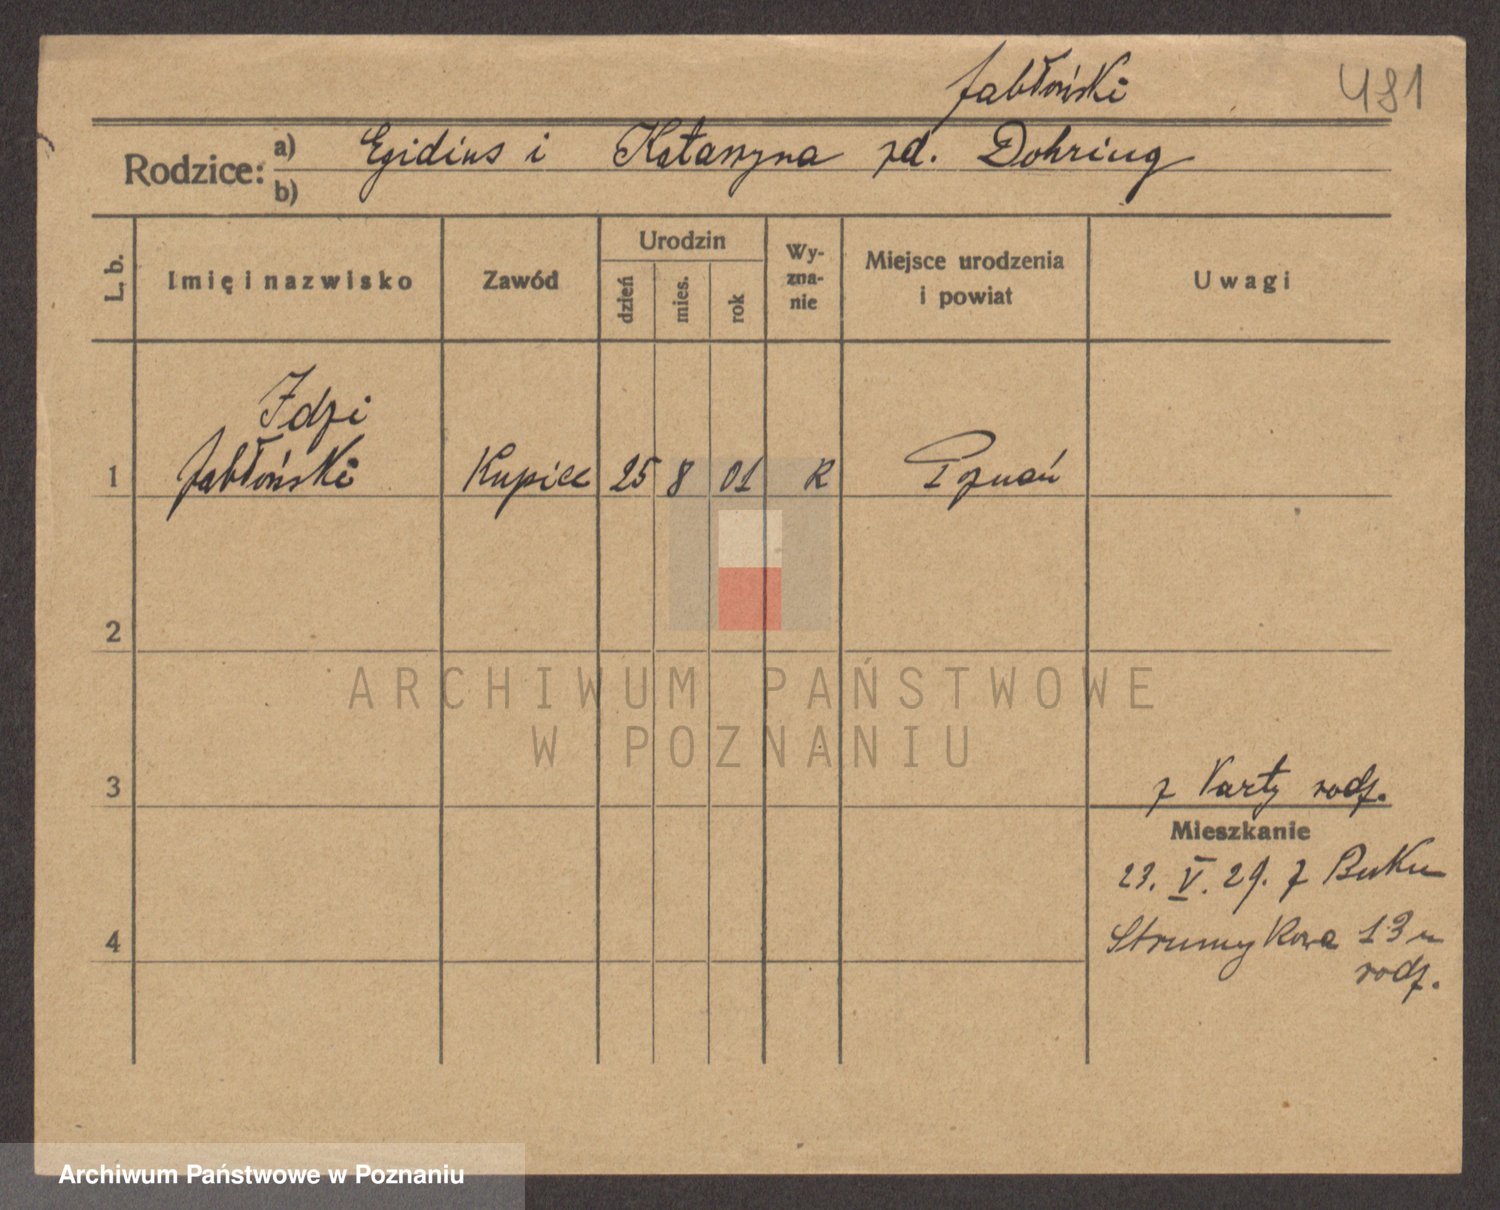 Jabłoński
481
Rodzice: a) Egidius i Katarzyna zd. Dohring
b)
L. b.
Imię i nazwisko
Zawód
Urodzin
dzień
mies.
rok
Wy-
zna-
nie
Miejsce urodzenia
i powiat
Uwagi
Idzi
1 Jabłoński Kupiec 25 8 01 R Poznań
2
ARCHIWUM PAŃSTWOWE
W POZNANIU
3
z Karty rodz.
Mieszkanie
23. V. 29. z Buku
4
Strumykowa 13 u
rodz.
Archiwum Państwowe w Poznaniu